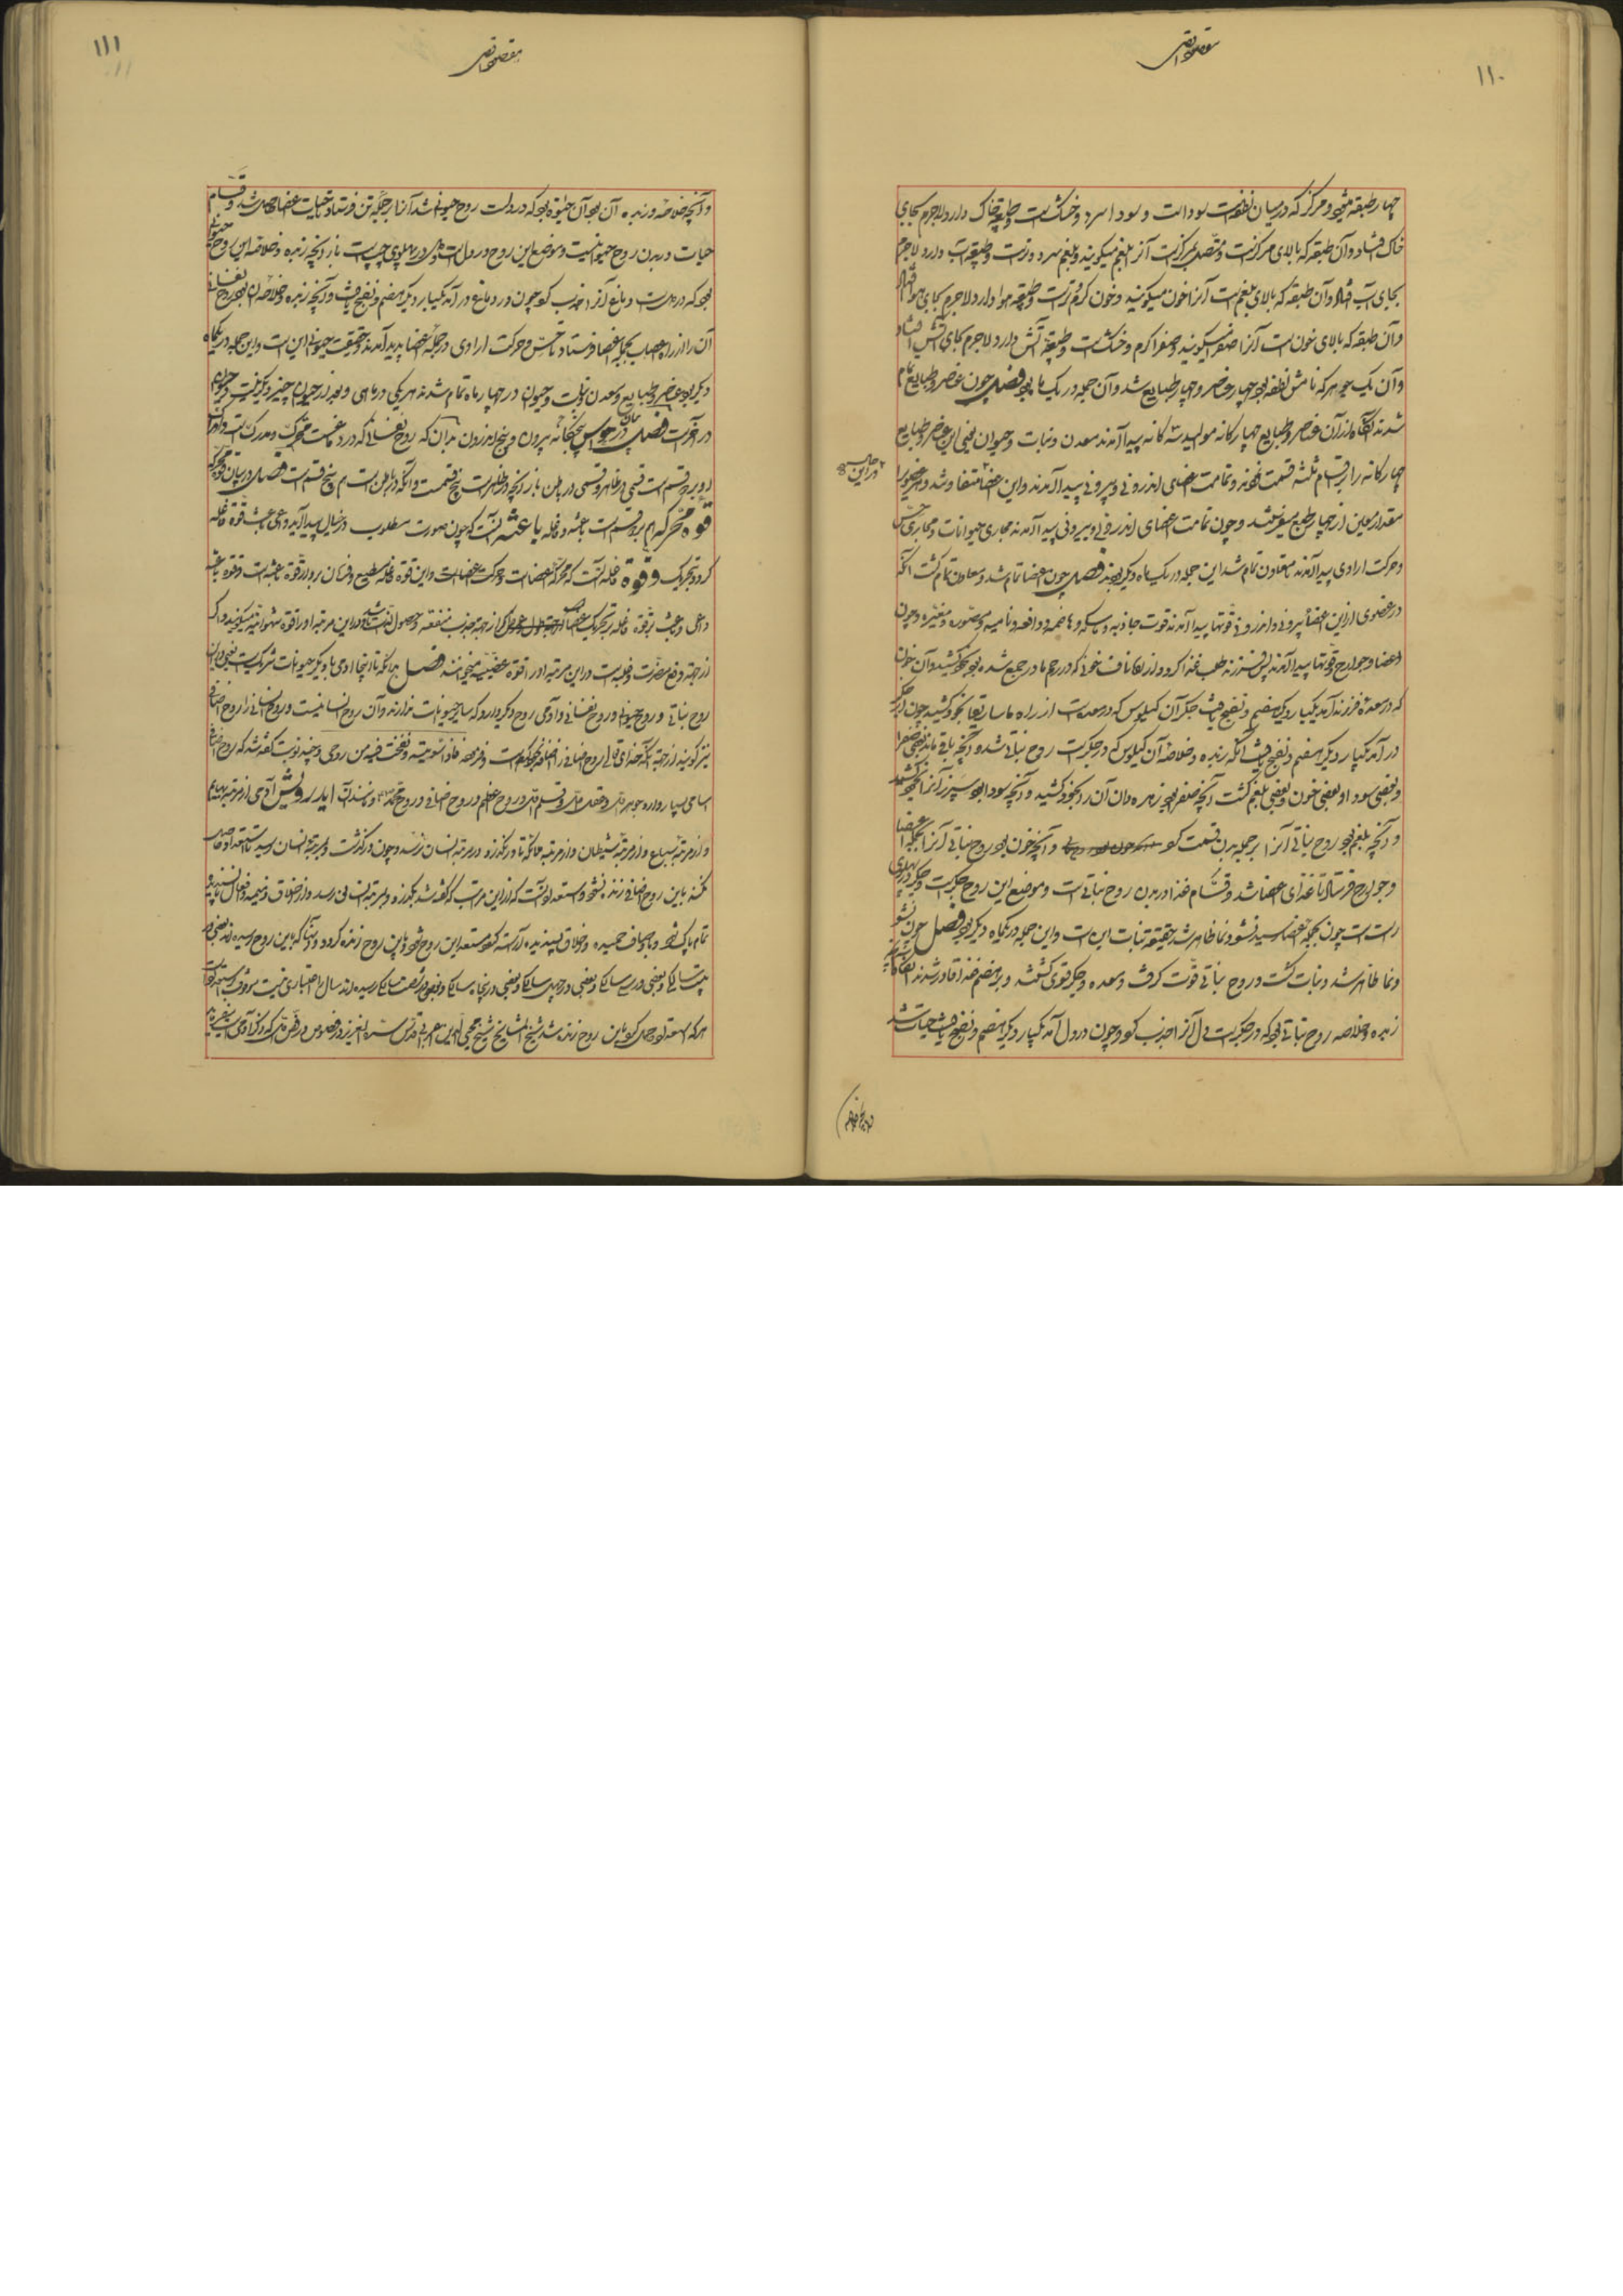 ۱۱۰
مقصد اقصی
چهار طبقه میشود مرکز که در میان نطفه است سوداست و سودا سرد و خشک است و طبیعة خاک دارد لاجرم بجای
خاک افتاد و آن طبقه که بالای مرکزست و متصل بمرکزست آنرا بلغم میگویند و بلغم سرد و ترست و طبیعة آب دارد لاجرم
بجای آب افتاد و آن طبقه که بالای بلغم است آنرا خون میگویند و خون گرم و ترست و طبیعة هوا دارد لاجرم بجای هوا افتاد
و آن طبقه که بالای خون است آنرا صفرا میگویند و صفرا گرم و خشک است و طبیعة آتش دارد لاجرم بجای آتش افتاد
و آن یک جوهر که نامش نطفه بود چهار عناصر و چهار طبایع شد و آن جمله در یک ماه بود فصل چون عناصر و طبایع تمام
شدند آنگاه از آن عناصر و طبایع چهارگانه موالید سه گانه پیدا آمدند معدن و نبات و حیوان یعنی این عناصر و طبایع
چهارگانه را قسّام قسمت کرد و تمامت اعضای اندرونی و بیرونی پیدا آمدند و این اعضا متفاوت شد و هر عضوی را
مقدار معین از چهار طبع بفرستد و چون تمامت اعضای اندرونی و بیرونی پیدا آمدند مجاری حیوانات و مجاری حس
و حرکت ارادی پیدا آمدند تا معادن تمام شد این جمله در یک ماه دیگر بودند فصل چون اعضا تمام شد و معادن تمام گشت آنگه
در عضوی از این اعضا بیرونی و اندرونی قوتها پیدا آمدند قوت جاذبه و ماسکه و هاضمه و دافعه و نامیه و مصوره و مغیره و چون
اعضا و جوارح و قوتها پیدا آمدند پس فرزند طلب غذا کرد و از راه ناف خونی که در رحم مادر جمع شده بود بخود کشید و آن خون
که در معده فرزند آمد یکبار دیگر هضم و نضج یافت جگر آن کیلوس که در معده است از راه ماساریقا بخود کشید چون در جگر
در آمد یکبار دیگر هضم و نضج یافت آنگه زبده و خلاصه آن کیلوس که در جگرست روح نباتی شد و آنچه باقی ماند بعضی صفرا
و بعضی سودا و بعضی خون و بعضی بلغم گشت آنچه صفرا بود زهره دان آن را بخود کشید و آنچه سودا بود سپرز آنرا بخود کشید
و آنچه بلغم بود روح نباتی آنرا بر جمله بدن قسمت کرد و آنچه خون بود روح نباتی آنرا بجمله اعضا
و جوارح فرستاد تا غذای اعضا شد و قسّام غذا در بدن روح نباتی است و موضع این روح جگرست و جگر در پهلوی
راست است چون بجمله اعضا رسید نشو و نما ظاهر شد حقیقة نبات این است و این جمله در یکماه دیگر بود فصل چون نشو
و نما ظاهر شد و نبات گشت و روح نباتی قوت گرفت و معده و جگر قوی گشتند و بر هضم غذا قادر شدند آنگاه آنچه
زبده و خلاصه روح نباتی بود که در جگرست دل آنرا جذب کرد و چون در دل آمد یکبار دیگر هضم و نضج یافت حیات شد
۱۱۱
مقصد اقصی
و آنچه خلاصه و زبده آن بود آن حیوة بود که در دل است روح حیوانی شد آنرا بر جمله تن فرستاد تا حیات اعضا حاصل شد و قسّام
حیات در بدن روح حیوانیست و موضع این روح در دل است و دل در پهلوی چپ است باز آنچه زبده و خلاصه این روح حیوانی
بود که در دل است دماغ آنرا جذب کرد چون در دماغ در آمد یکبار دیگر هضم و نضج یافت و آنچه زبده و خلاصه آن بود روح نفسانی
آن را از راه اعصاب بجمله اعضا فرستاد تا حس و حرکت ارادی در جمله اعضا پدید آمدند و حقیقت حیوانی این است و این جمله در یکماه
دیگر بود عناصر و طبایع و معدن و نبات و حیوان در چهار ماه تمام شدند هر یکی در ماهی و بعد از حیوان چیز دیگر نیست و حیوان
در آخرست فصل در بیان حواس پنجگانه بیرون و پنج اندرون بدان که روح نفسانی که در دماغست محرک و مدرک است و ادراک
او بر دو قسم است قسمی در ظاهر و قسمی در باطن باز آنچه در ظاهرست پنج قسمست و آنکه در باطن است هم پنج قسم است فصل در بیان قوة محرکه
قوة محرکه هم بر دو قسم است باعثه و فاعله باعثه آنست که چون صورت مطلوب در خیال پیدا آید و داعی و باعث قوة فاعله
گردد بتحریک و قوة فاعله آنست که محرک اعضاست و حرکت اعضا ازوست و این قوة فاعله مطیع و فرمان بردار قوة باعثه است و قوة باعثه
داعی و باعث بر قوة فاعله بتحریک اعضا از جهة جذب منفعت و حصول لذت باشد در این مرتبه او را قوة شهوانیه میگویند و اگر
از جهة دفع مضرت و غلبه است در این مرتبه او را قوة غضبیه میخوانند فصل بدانکه تا اینجا آدمی با دیگر حیوانات شریک است یعنی در این
روح نباتی و روح حیوانی و روح نفسانی و آدمی روح دیگر دارد که سایر حیوانات ندارند و آن روح انسانیست و روح انسانی را روح اضافی
نیز گویند از جهة آنکه خدای تعالی روح انسانی را اضافه بخود کرده است و فرموده فاذا سویته و نفخت فیه من روحی و چند نوبت گفته شد که روح اضافی
اسامی بسیار دارد جوهر اول و عقل اول و قلم اول و روح اعظم و روح اضافی و روح محمد و مانند آن ای درویش آدمی از مرتبه بهایم
و از مرتبه سباع و از مرتبه شیطان و از مرتبه ملائکه تا در نگذرد در مرتبه انسان نرسد و چون در گذشت و بمرتبه انسان رسید مستعد آن
گردد باین روح اضافی زنده شود و مستعد آنست که از این مراتب که گفته شد بگذرد و بمرتبه انسانی رسد و از اخلاق ذمیمه و افعال ناپسندیده
تمام پاک شود و باوصاف حمیده و اخلاق پسندیده آراسته گردد مستعد این روح شود و باین روح زنده گردد و آنها که باین روح رسیده‌اند بعضی در
بیست سالگی و بعضی در سی سالگی و بعضی در چهل سالگی و بعضی در پنجاه سالگی و بعضی در شصت سالگی رسیده‌اند سال را اعتباری نیست
هر که مستعد باین روح زنده شد شیخ المشایخ شیخ محیی الدین اعرابی قدس سره العزیز در فصوص در فص اول